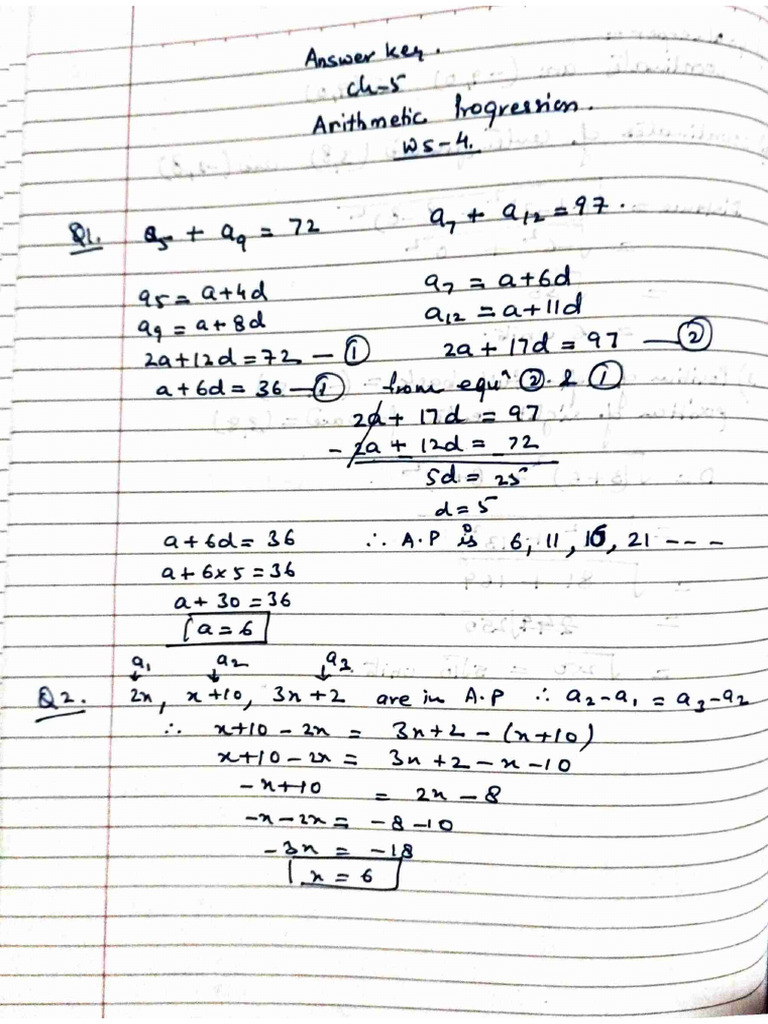 Answer key.
Ch-5
Arithmetic Progression.
WS-4.
Q1. a5 + a9 = 72 a7 + a12 = 97.
a5 = a+4d a7 = a+6d
a9 = a+8d a12 = a+11d
2a+12d = 72 — ① 2a + 17d = 97 — ②
a+6d = 36 — ① from equⁿ ② & ①
2a + 17d = 97
- 2a + 12d = 72
5d = 25
d = 5
a+6d = 36 ∴ A.P is 6, 11, 16, 21 ---
a + 6×5 = 36
a + 30 = 36
a = 6
a1 a2 a3
Q2. 2x, x+10, 3x+2 are in A.P ∴ a2-a1 = a3-a2
∴ x+10 - 2x = 3x+2 - (x+10)
x+10 - 2x = 3x+2 - x - 10
-x+10 = 2x - 8
-x - 2x = -8 - 10
-3x = -18
x = 6